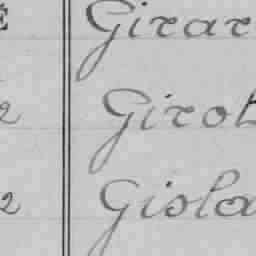 E Girar
2 Girot
2 Gisla